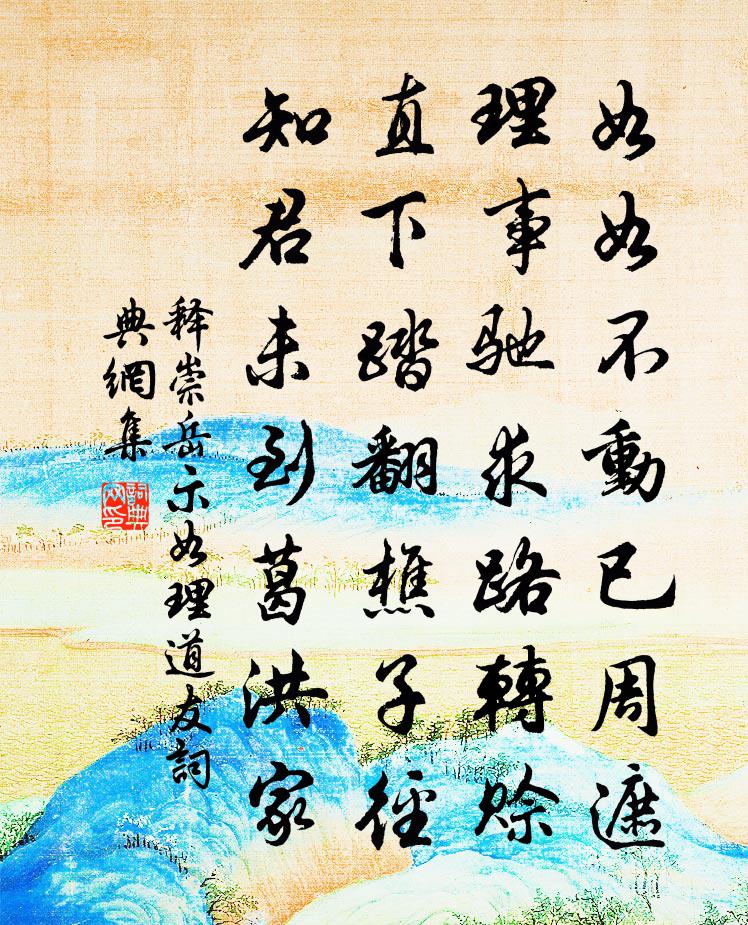 如如不動已周遮
理事馳求路轉賒
直下踏翻樵子徑
知君未到葛洪家
释崇岳示如理道友詞
典網集
詞典